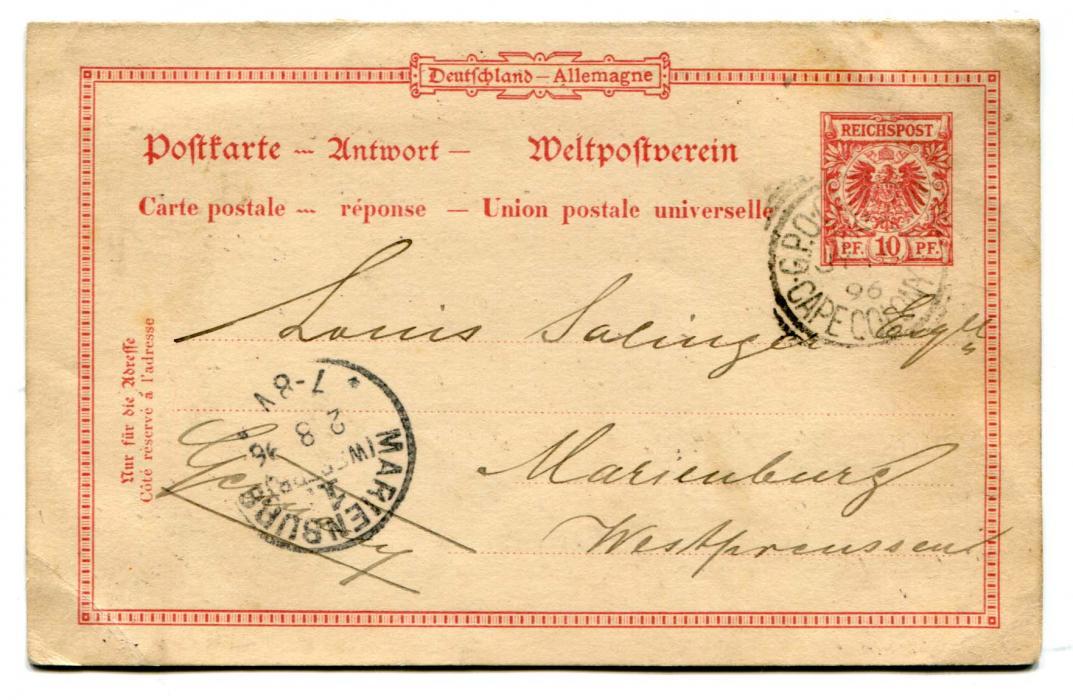 Deutschland – Allemagne
Postkarte – Antwort – Weltpostverein
Carte postale – réponse – Union postale universelle
REICHSPOST
PF. 10 PF.
G.P.O.
96
CAPE COLONY
Louis Salinger Esq
Marienburg
Westpreussen
Germany
MARIENBURG
2 8 96
7-8V
Nur für die Adresse
Côté réservé à l'adresse